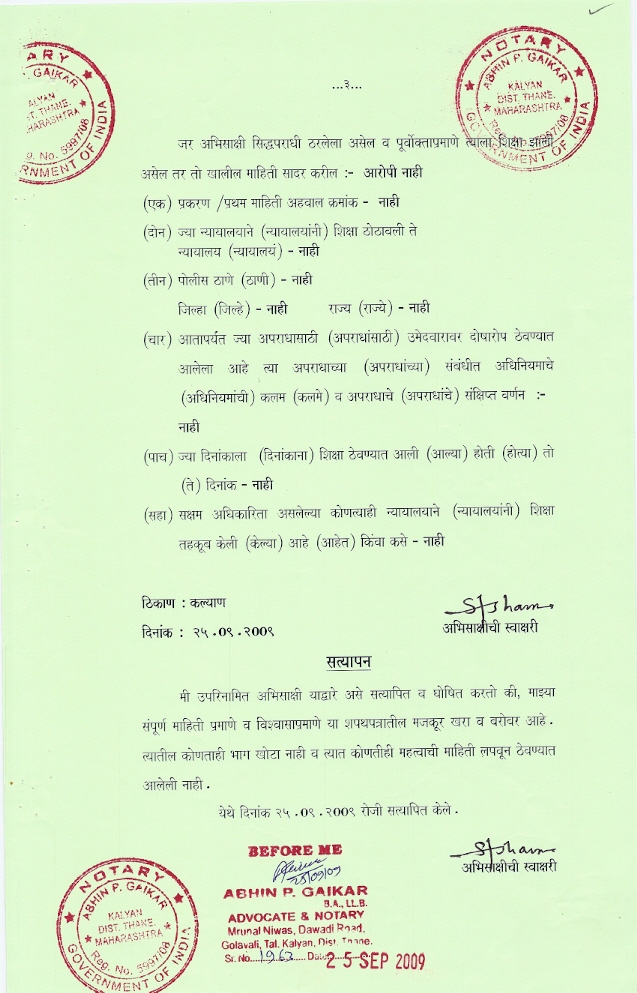 ...३...
जर अभिसाक्षी सिद्धपराधी ठरलेला असेल व पूर्वोक्ताप्रमाणे त्याला शिक्षा झाली
असेल तर तो खालील माहिती सादर करील :- आरोपी नाही
(एक) प्रकरण /प्रथम माहिती अहवाल क्रमांक - नाही
(दोन) ज्या न्यायालयाने (न्यायालयांनी) शिक्षा ठोठावली ते
न्यायालय (न्यायालयं) - नाही
(तीन) पोलीस ठाणे (ठाणी) - नाही
जिल्हा (जिल्हे) - नाही राज्य (राज्ये) - नाही
(चार) आतापर्यत ज्या अपराधासाठी (अपराधांसाठी) उमेदवारावर दोषारोप ठेवण्यात
आलेला आहे त्या अपराधाच्या (अपराधांच्या) संबंधीत अधिनियमाचे
(अधिनियमांची) कलम (कलमे) व अपराधाचे (अपराधांचे) संक्षिप्त वर्णन :-
नाही
(पाच) ज्या दिनांकाला (दिनांकाना) शिक्षा ठेवण्यात आली (आल्या) होती (होत्या) तो
(ते) दिनांक - नाही
(सहा) सक्षम अधिकारिता असलेल्या कोणत्याही न्यायालयाने (न्यायालयांनी) शिक्षा
तहकूब केली (केल्या) आहे (आहेत) किंवा कसे - नाही
ठिकाण : कल्याण
दिनांक : २५.०९.२००९
अभिसाक्षीची स्वाक्षरी
सत्यापन
मी उपरिनामित अभिसाक्षी याद्वारे असे सत्यापित व घोषित करतो की, माझ्या
संपूर्ण माहिती प्रमाणे व विश्वासाप्रमाणे या शपथपत्रातील मजकूर खरा व बरोबर आहे.
त्यातील कोणताही भाग खोटा नाही व त्यात कोणतीही महत्वाची माहिती लपवून ठेवण्यात
आलेली नाही.
येथे दिनांक २५.०९.२००९ रोजी सत्यापित केले.
अभिसाक्षीची स्वाक्षरी
BEFORE ME
25/09/09
ABHIN P. GAIKAR
B.A., LL.B.
ADVOCATE & NOTARY
Mrunal Niwas, Dawadi Road,
Golavali, Tal. Kalyan, Dist. Thane.
Sr. No. 1963 Date 25 SEP 2009
NOTARY
ABHIN P. GAIKAR
KALYAN
DIST. THANE.
MAHARASHTRA
Reg. No. 5997/08
GOVERNMENT OF INDIA
ARY
. GAIKAR
ALYAN
ST. THANE.
HARASHTRA
g. No. 5997/08
RNMENT OF INDIA
NOTARY
ABHIN P. GAIKAR
KALYAN
DIST. THANE.
MAHARASHTRA
Reg. No. 5997/08
GOVERNMENT OF INDIA